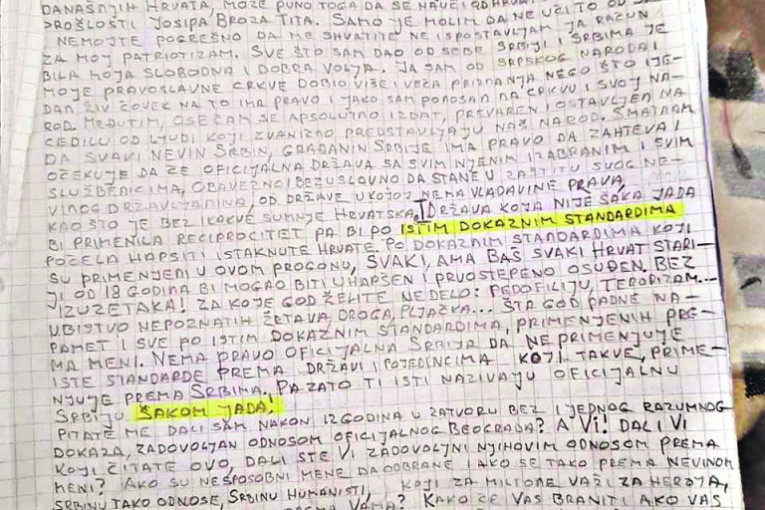 DANAŠNJIH HRVATA, MOŽE PUNO TOGA DA SE NAUČI
PROŠLOSTI JOSIPA BROZA TITA. SAMO JE MOLIM DA NE UČITO OD
NEMOJTE POGREŠNO DA ME SHVATITE NE ISPOSTAVLJAM JA RAČUN
ZA MOJ PATRIOTIZAM. SVE ŠTO SAM DAO OD SEBE SRBIJI I SRBIMA JE
BILA MOJA SLOBODNA I DOBRA VOLJA. JA SAM OD SRPSKOG NARODA I
MOJE PRAVOSLAVNE CRKVE DOBIO VIŠE I VEĆA PRIZNANJA NEGO ŠTO IJE-
DAN ŽIV ČOVEK NA TO IMA PRAVO I JAKO SAM PONOSAN NA CRKVU I SVOJ NA-
ROD. MEĐUTIM, OSEĆAM SE APSOLUTNO IZDAT, PREVAREN I OSTAVLJEN NA
CEDILU OD LJUDI KOJI ZVANIČNO PREDSTAVLJAJU NAŠ NAROD. SMATRAM
DA SVAKI NEVIN SRBIN, GRAĐANIN SRBIJE IMA PRAVO DA ZAHTEVA I
OČEKUJE DA ĆE OFICIJALNA DRŽAVA SA SVIM NJENIM IZABRANIM I SVIM
SLUŽBENICIMA, OBAVEZNO I BEZUSLOVNO DA STANE U ZAŠTITU SVOG NE-
VINOG DRŽAVLJANINA, OD DRŽAVE U KOJOJ NEMA VLADAVINE PRAVA,
KAO ŠTO JE BEZ IKAKVE SUMNJE HRVATSKA. I DRŽAVA KOJA NIJE ŠAKA JADA
BI PRIMENILA RECIPROCITET PA BI PO ISTIM DOKAZNIM STANDARDIMA
POČELA HAPSITI ISTAKNUTE HRVATE. PO DOKAZNIM STANDARDIMA KOJI
SU PRIMENJENI U OVOM PROGONU, SVAKI, AMA BAŠ SVAKI HRVAT STARI-
JI OD 18 GODINA BI MOGAO BITI UHAPŠEN I PRVOSTEPENO OSUĐEN. BEZ
IZUZETAKA! ZA KOJE GOD ŽELITE NEDELO: PEDOFILIJU, TERORIZAM...
UBISTVO NEPOZNATIH ŽRTAVA, DROGA, PLJAČKA... ŠTA GOD PADNE NA-
PAMET I SVE PO ISTIM DOKAZNIM STANDARDIMA, PRIMENJENIH PRE-
MA MENI. NEMA PRAVO OFICIJALNA SRBIJA DA NE PRIMENJUJE
ISTE STANDARDE PREMA DRŽAVI I POJEDINCIMA KOJI TAKVE, PRIME-
NJUJE PREMA SRBIMA. PA ZATO TI ISTI NAZIVAJU OFICIJALNU
SRBIJU ŠAKOM JADA!
PITATE ME DALI SAM NAKON 12 GODINA U ZATVORU BEZ IJEDNOG RAZUMNOG
DOKAZA, ZADOVOLJAN ODNOSOM OFICIJALNOG BEOGRADA? A VI! DALI VI
KOJI ČITATE OVO, DALI STE VI ZADOVOLJNI NJIHOVIM ODNOSOM PREMA
MENI? AKO SU NESPOSOBNI MENE DA ODBRANE I AKO SE TAKO PREMA NEVINOM
SRBINU TAKO ODNOSE, SRBINU HUMANISTI, KOJI ZA MILIONE VAŽI ZA HEROJA,
PREMA VAMA? KAKO ĆE VAS BRANITI AKO VAS